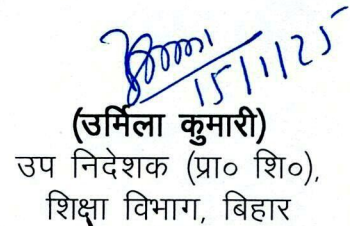 15/1/25
(उर्मिला कुमारी)
उप निदेशक (प्रा० शि०),
शिक्षा विभाग, बिहार